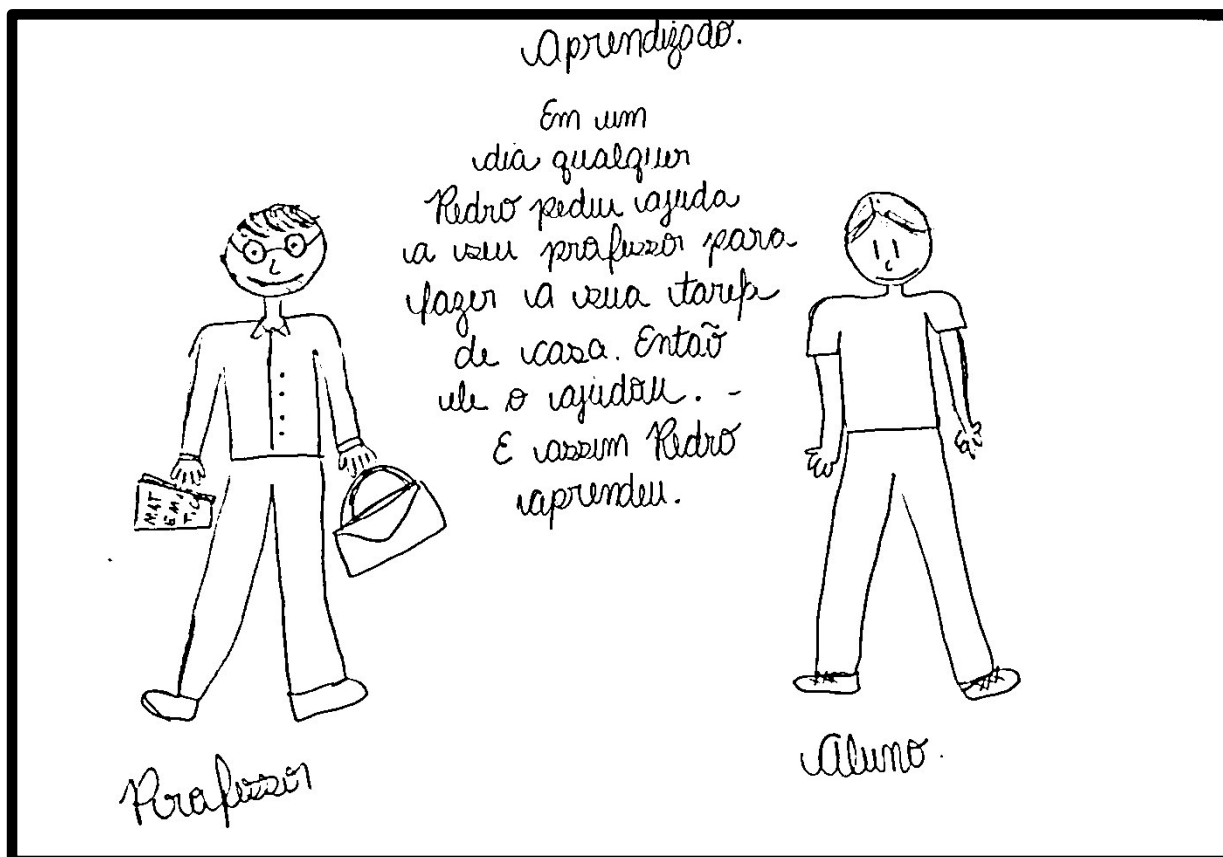 Aprendizado.
Em um
dia qualquer
Pedro pediu ajuda
a seu professor para
fazer a sua tarefa
de casa. Então
ele o ajudou. -
E assim Pedro
aprendeu.
MAT
EMÁ
TICA
Professor
Aluno.